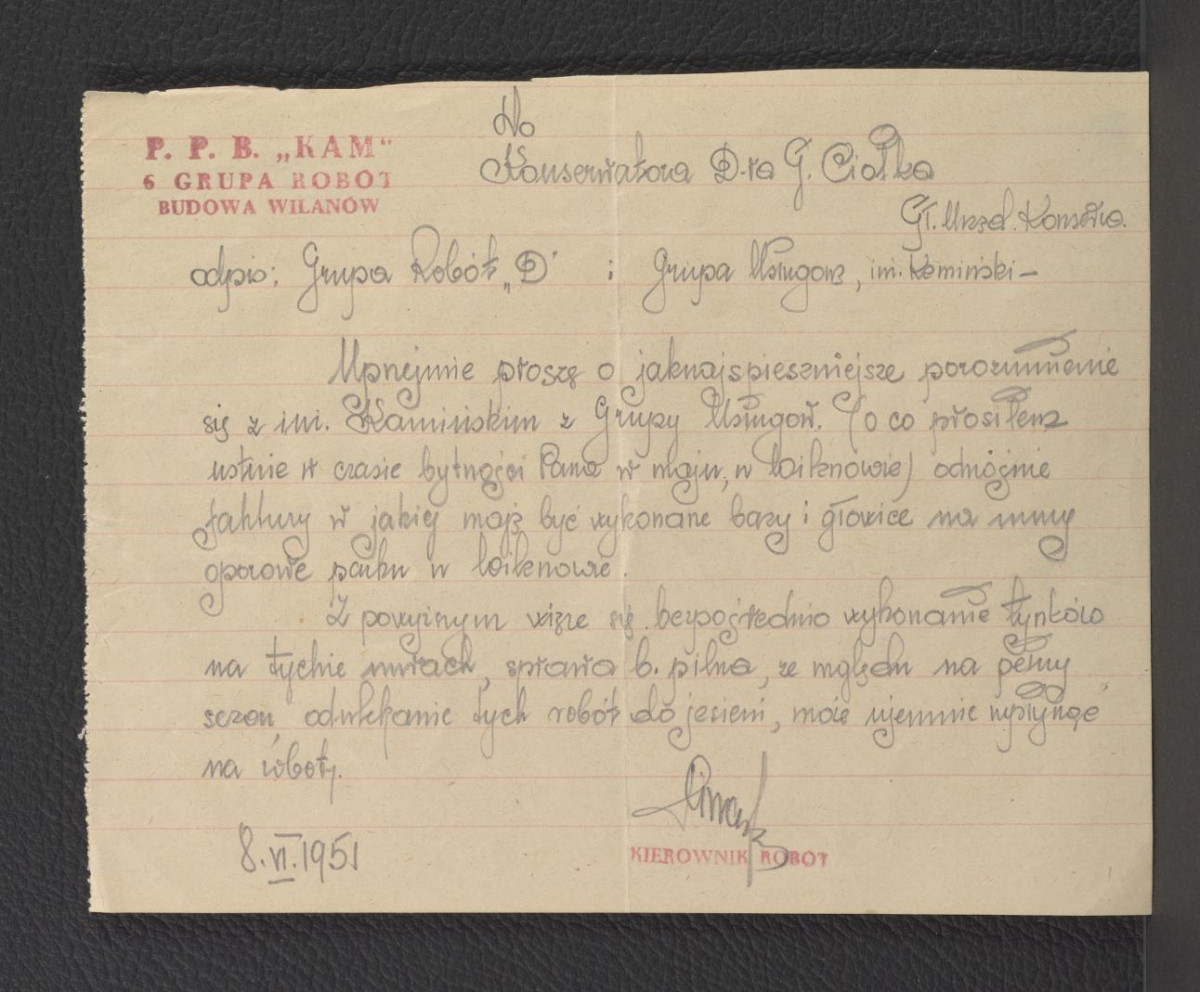 P. P. B. „KAM"
6 GRUPA ROBOT
BUDOWA WILANÓW
Do
Konserwatora D-ra G. Ciołka
Gł. Urząd. Konserwa.
odpis: Grupa Robót „D" i Grupa Usługow, inż. Kamiński –
Uprzejmie proszę o jaknajspieszniejsze porozumienie
się z inż. Kamińskim z Grupy Usługow. (o co prosiłem
ustnie w czasie bytności Pana w maju, w Wilanowie) odnośnie
faktury w jakiej mają być wykonane bazy i głowice na mury
oporowe parku w Wilanowie.
Z powyższym wiąże się bezpośrednio wykonanie tynków
na tychże murach, sprawa b. pilna, ze względu na pełny
sezon, odwlekanie tych robót do jesieni, może ujemnie wpłynąć
na roboty.
8.VI.1951
KIEROWNIK ROBOT